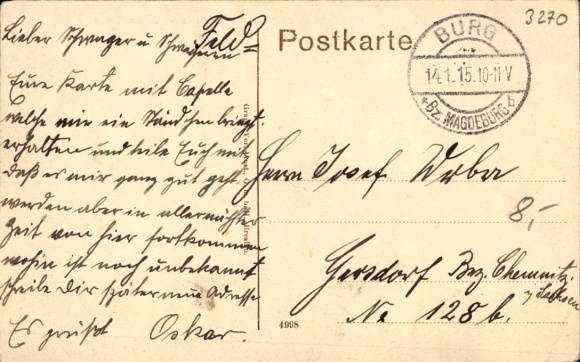 3270
Lieber Schwager u Schwägerin
Feld=
Postkarte
BURG
14.1.15.10-11V
*Bz. MAGDEBURG b
Eure Karte mit Capelle
welche mir ein Ständchen bringt.
erhalten und teile Euch mit
daß es mir ganz gut geht
werden aber in allernächster
Zeit von hier fortkommen
wohin ist noch unbekannt
schreibe Dir später neue Adresse
Es grüßt Oskar.
Herrn Josef Urba
8,-
Gersdorf Bez. Chemnitz
i/ Sachsen
No 128 b.
4998